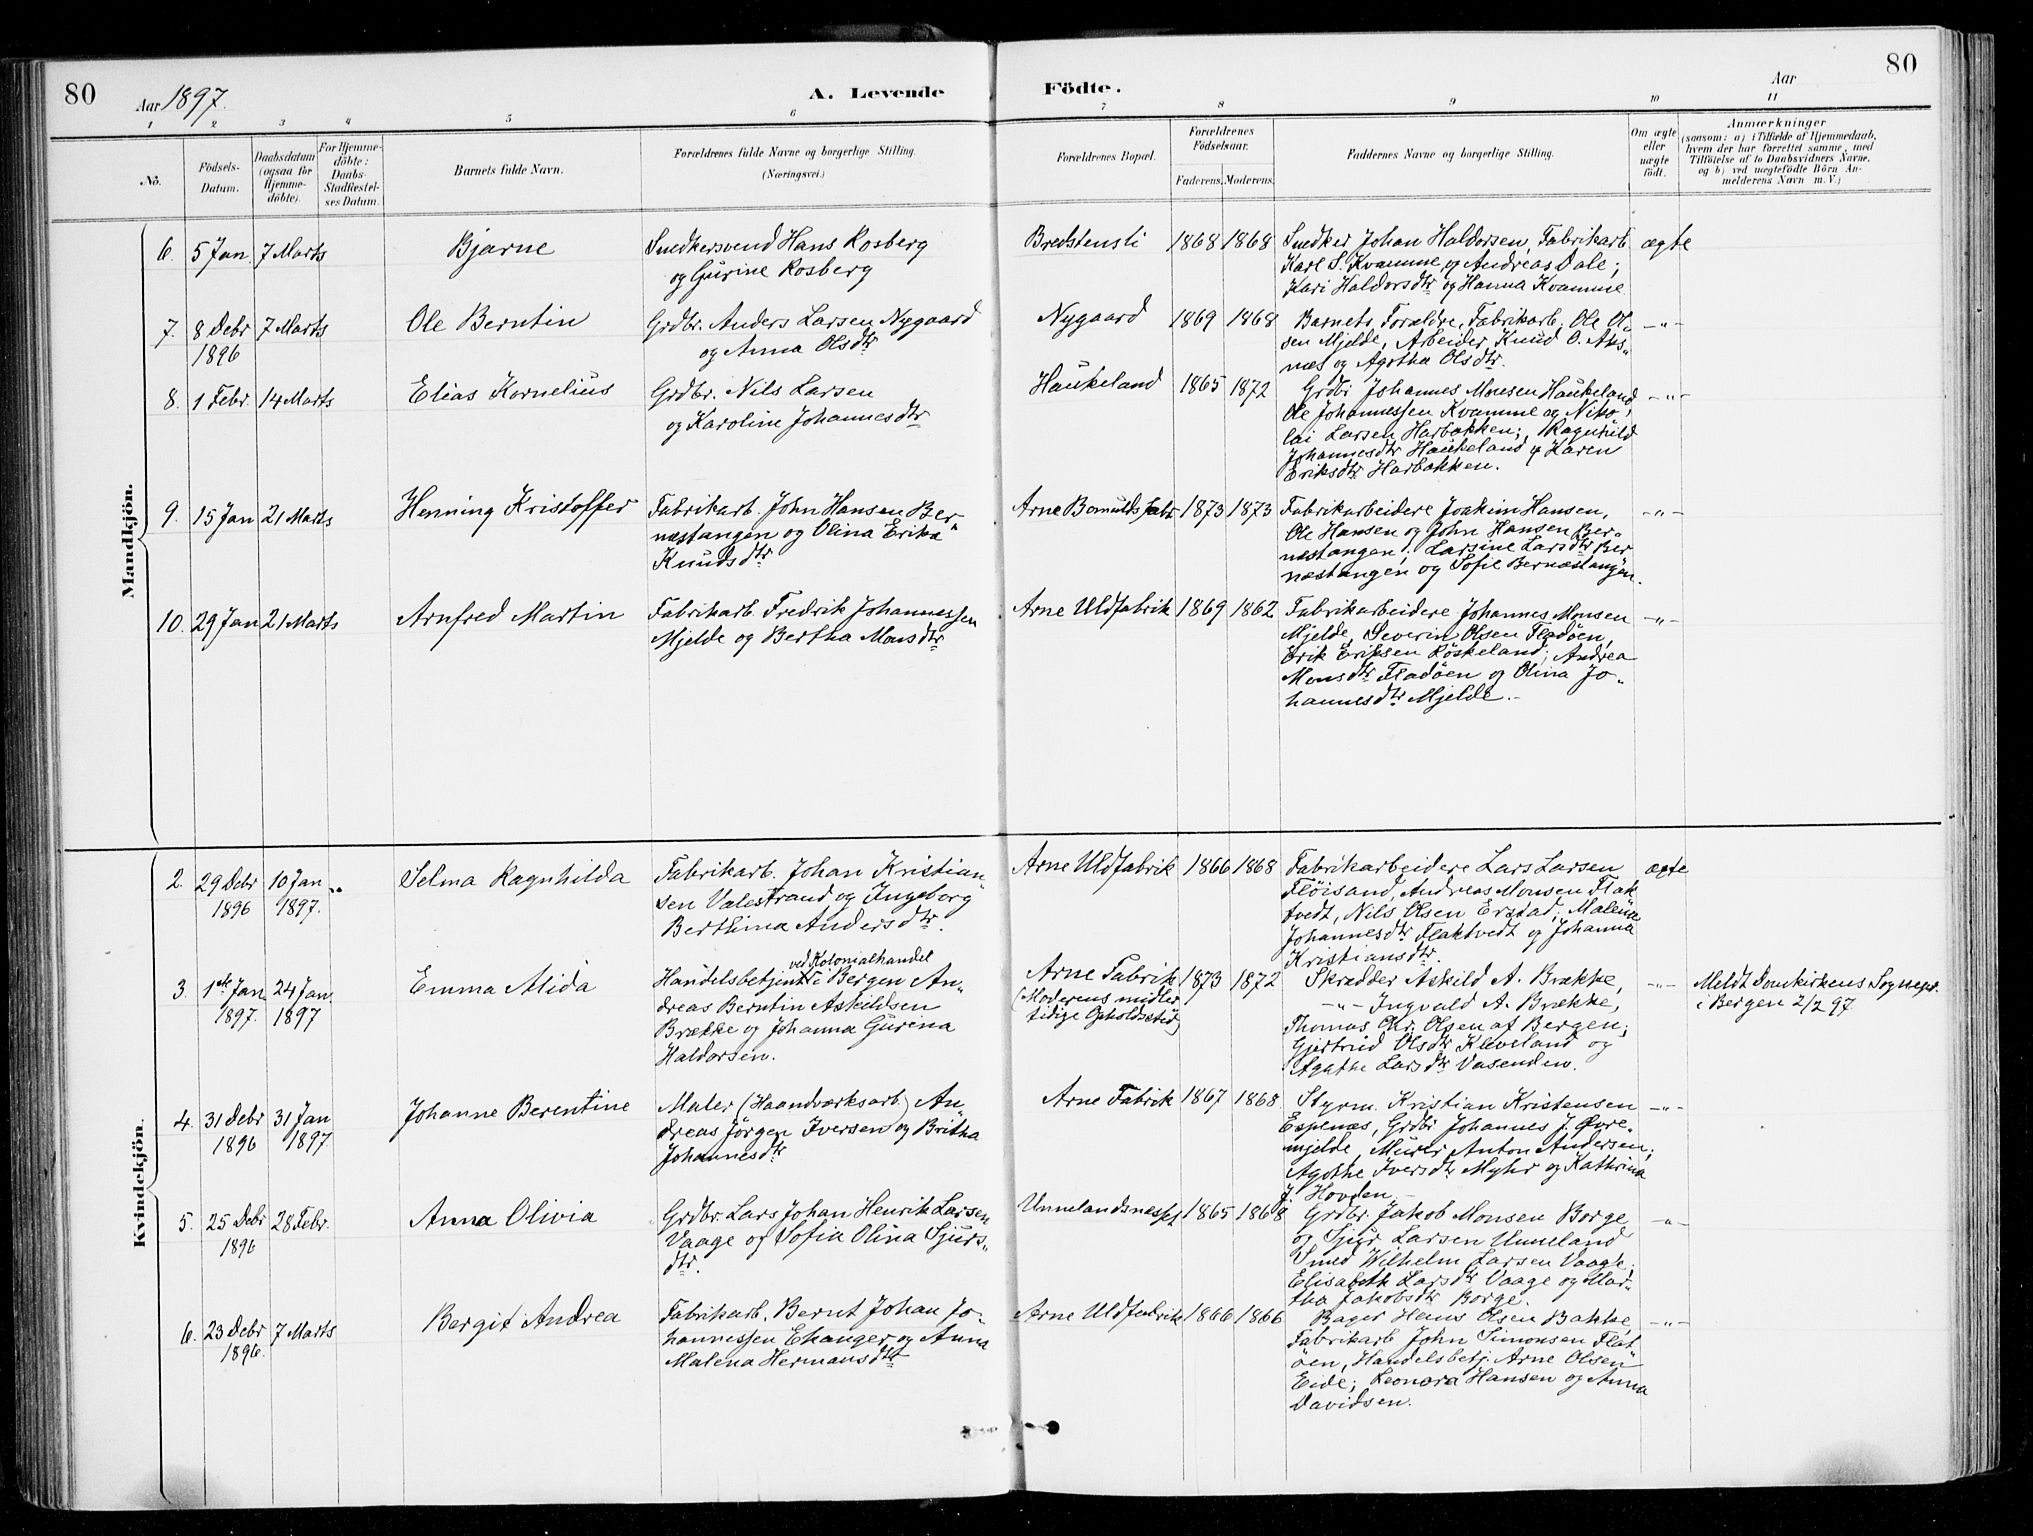 80
Aar 1897.
A. Levende
Födte.
Aar
80
1
2
3
4
5
6
7
8
9
10
11
No.
Födsels-
Datum.
Daabsdatum
(ogsaa for
Hjemme-
döbte).
For Hjemme-
döbte:
Daabs-
Stadfestel-
ses Datum.
Barnets fulde Navn.
Forældrenes fulde Navne og borgerlige Stilling.
(Næringsvei.)
Forældrenes Bopæl.
Forældrenes
Födselsaar.
Faderens.
Moderens.
Faddernes Navne og borgerlige Stilling.
Om ægte
eller
uægte
födt.
Anmærkninger
(saasom: a) i Tilfælde af Hjemmedaab,
hvem der har forrettet samme, med
Tilföielse af to Daabsvidners Navne,
og b) ved uægtefödte Börn An-
melderens Navn m. V.)
Mandkjön.
6. 5 Jan. 7 Marts
Bjarne
Snedkersvend Hans Rosberg
og Gurine Rosberg
Bredstensli 1868 1868
Snedker Johan Haldorsen, Fabrikarb.
Karl S. Kvamme og Andreas Dale;
Kari Haldorsdtr og Hanna Kvamme
ægte
7. 8 Debr 7 Marts
1896
Ole Berntin
Grdbr. Anders Larsen Nygaard
og Anna Olsdtr
Nygaard 1869 1868
Barnets Forældre, Fabrikarb. Ole Ol-
sen Mjelde, Arbeider Knud O. Aks-
næs og Agotha Olsdtr.
-"-
8. 1 Febr. 14 Marts
Elias Kornelius
Grdbr. Nils Larsen
og Karoline Johannesdtr
Haukeland 1865 1872
Grdbr Johannes Monsen Haukeland,
Ole Johannessen Kvamme og Niko-
lai Larsen Harbakken; Ragnhild
Johannesdtr Haukeland & Karen
Eriksdtr Harbakken.
-"-
9. 15 Jan 21 Marts
Henning Kristoffer
Fabrikarb. John Hansen Ber-
næstangen og Olina Erika
Knudsdtr
Arne Bomulds fabr 1873 1873
Fabrikarbeidere Joakim Hansen,
Ole Hansen og John Hansen Ber-
næstangen; Larsine Larsdtr Ber
næstangen og Sofie Bernæstangen.
-"-
10. 29 Jan 21 Marts
Arnfred Martin
Fabrikarb. Fredrik Johannessen
Mjelde og Bertha Monsdtr
Arne Uldfabrik 1869 1862
Fabrikarbeidere Johannes Monsen
Mjelde, Severin Olsen Fladöen,
Erik Eriksen Röskeland; Andrea
Monsdtr Fladöen og Olina Jo-
hannesdtr Mjelde.-
-"-
Kvindekjön.
2. 29 Debr 10 Jan
1896 1897.
Selma Ragnhilda
Fabrikarb. Johan Kristian-
sen Valestrand og Ingeborg
Berthina Andersdtr.
Arne Uldfabrik 1866 1868
Fabrikarbeidere Lars Larsen
Flöisand, Andreas Monsen Flak
tvedt, Nils Olsen Erstad; Malene
Johannesdtr Flaktvedt og Johanna
Kristiansdtr.
ægte
3. 1ste Jan 24 Jan
1897. 1897
Emma Alida
ved Kolonialhandel
Handelsbetjent i Bergen An-
dreas Berntin Askildsen
Brække og Johanna Gurena
Haldorsen.
Arne Fabrik 1873 1872
(Moderens midler
tidige Opholdssted)
Skrædder Askild A. Brække,
-"- Ingvald A. Brække,
Thomas Chr. Olsen af Bergen;
Gjertrud Olsdtr Kleveland og
Agathe Larsdtr Vasenden.
-"-
Meldt Domkirkens Sognepr.
i Bergen 2/2 97
4. 31 Debr 31 Jan
1896 1897.
Johanne Berentine
Maler (Haandværksarb.) An-
dreas Jörgen Iversen og Britha
Johannesdtr
Arne Fabrik 1867 1868
Styrm. Kristian Kristensen
Espenæs, Grdbr Johannes J. Övre-
mjelde, Murer Anton Andersen;
Agothe Iversdtr Myhr og Kathrina
J. Hovden.-
-"-
5. 25 Debr 28 Febr.
1896
Anna Olivia
Grdbr. Lars Johan Henrik Larsen
Vaage og Sofia Olina Sjurs-
dtr.
Unnelandsnesset 1865 1868
Grdbr. Jakob Monsen Borge
og Sjur Larsen Unneland
Smed Wilhelm Larsen Vaage;
Elisabeth Larsdtr Vaage og Mar-
tha Jakobsdtr Borge.
-"-
6. 23 Debr 7 Marts
1896.
Bergit Andrea
Fabrikarb. Bernt Johan Jo-
hannessen Ekanger og Anna
Malena Hermansdtr
Arne Uldfabrik 1866 1866
Bager Hans Olsen Bakke
Fabrikarb John Simonsen Flat
öen, Handelsbetj. Arne Olsen
Eide; Leonora Hansen og Anna
Davidsen.
-"-